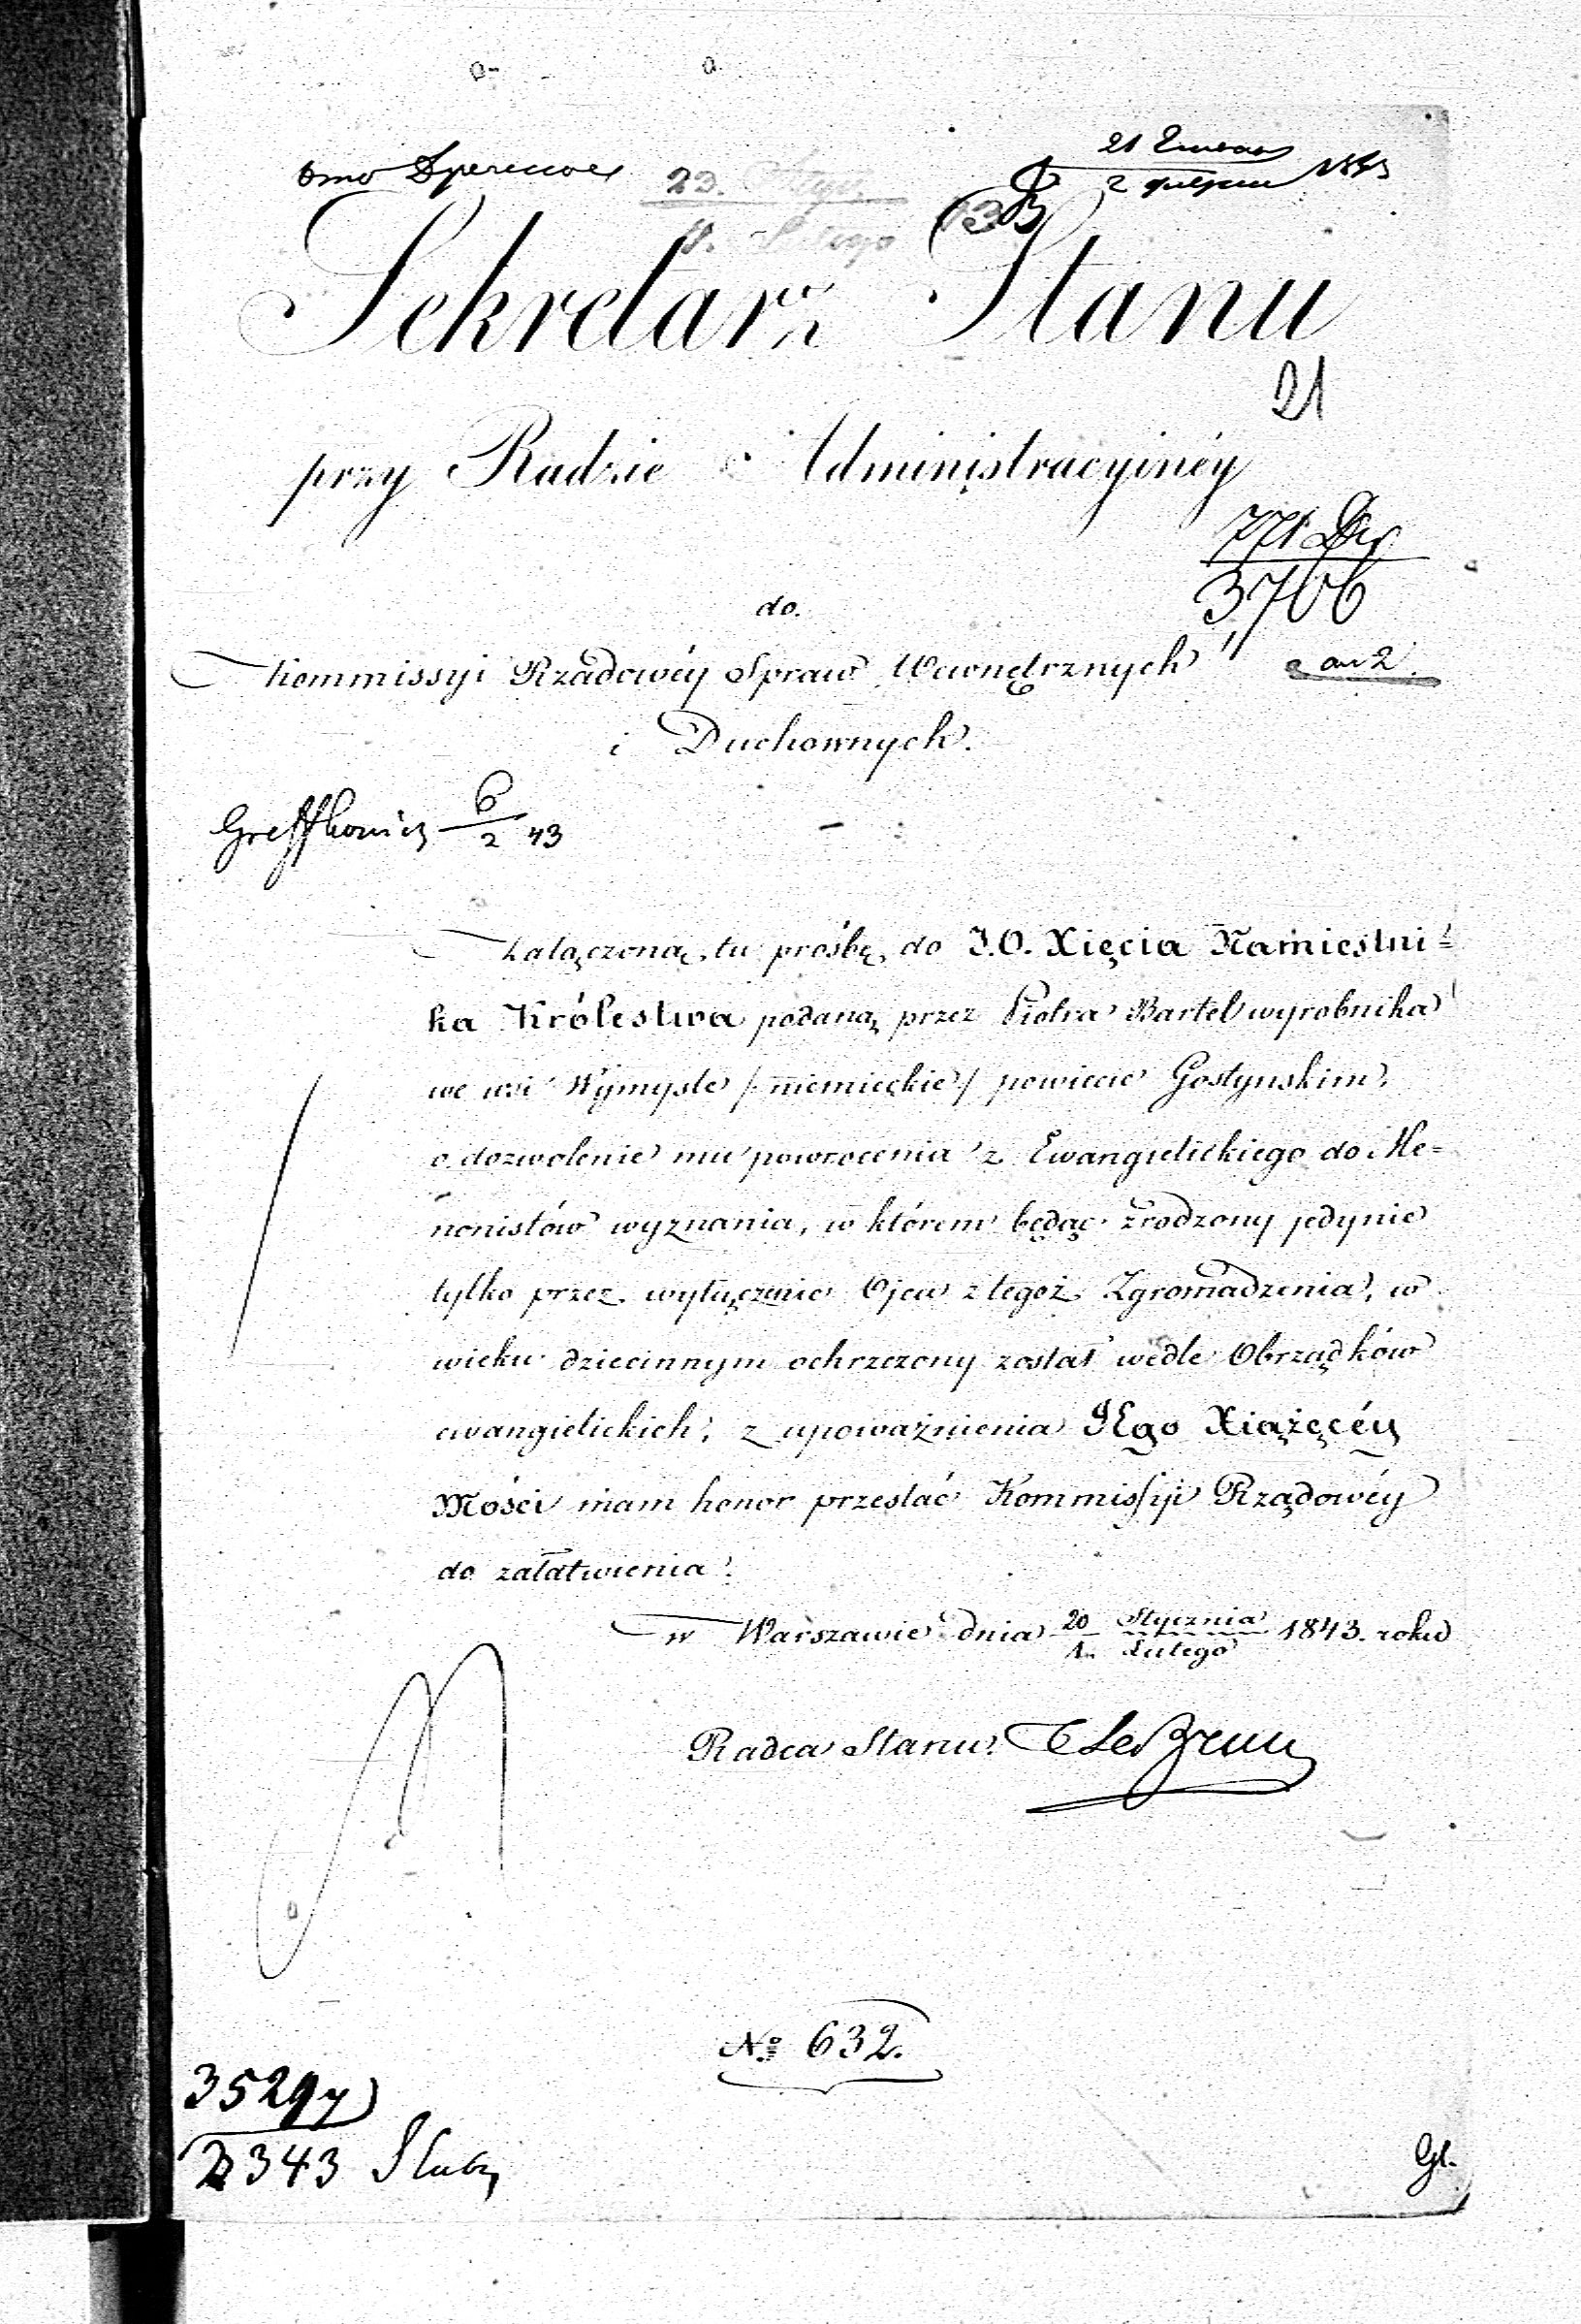 23. Stycz.
11. Lutego
21
1843
2
Sekretarz Stanu
21
przy Radzie Administracyinéy
771
3706
do
Kommissyi Rządowéy Spraw Wewnętrznych
i Duchownych.
6/2 43
Załączoną tu prośbę do J.O. Xięcia Namiestni=
ka Królestwa podaną przez Piotra Bartel wyrobnika
we wsi Wymyśle /niemieckie/ powiecie Gostynskim,
o dozwolenie mu powrocenia z Ewangielickiego do Me=
nonistów wyznania, w którem będąc zrodzony jedynie
tylko przez wyłączenie Ojca z tegoż Zgromadzenia, w
wieku dziecinnym ochrzczony został wedle Obrządków
ewangielickich; z upoważnienia JEgo Xiążęcéy
Mości mam honor przesłać Kommissyi Rządowéy
do załatwienia.
w Warszawie dnia 20 Stycznia / 1 Lutego 1843. roku
Radca Stanu.
№ 632.
3529
2343
Gl.